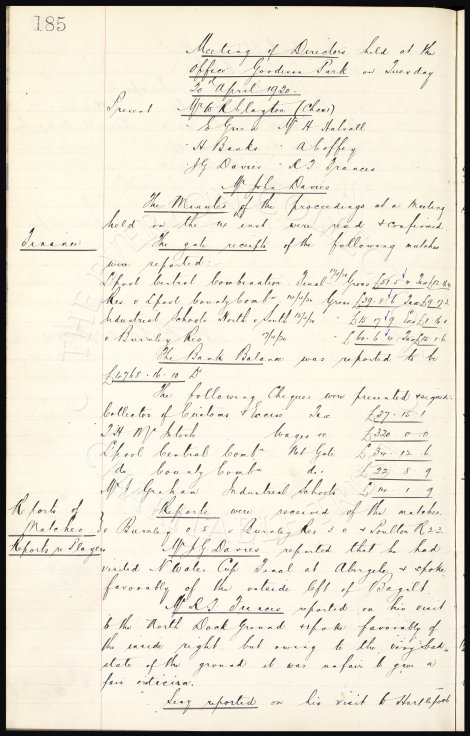 185
Meeting of Directors held at the
office Goodison Park on Tuesday
20th April 1920.
Present Mr W R Clayton (Chair)
E Green Mr H Halsall
H Banks A Coffey
J G Davies R T Francis
Mr John Davies
The Minutes of the proceedings at a Meeting
held on the inst were read & confirmed
Finance
The gate receipts of the following matches
were reported:-
L'pool Central Combination Final Gross
Res v L'pool County Comb Gross
Industrial Schools North v South
v Burnley Res
The Bank Balance was reported to be
£4768 . 16 . 10 Dr
The following Cheques were presented & signed:
Collector of Customs & Excise Tax £37 . 15 . 1
T. H. McIntosh Wages &c £320 . 0 . 0
L'pool Central Comb Net Gate £34 . 12 . 6
do County Comb do: £22 . 8 . 9
Mr J Graham Industrial Schools £14 . 1 . 9
Reports of
Matches
Reports were received of the matches
v Burnley 0 . 5 v Burnley Res 3 0 & Poulton R 3-3.
Reports re Players
Mr J G Davies reported that he had
visited N Wales Cup Final at Abergele & spoke
favorably of the outside left of Bagilt.
Mr R. T. Francis reported on his visit
to the North Dock Ground & spoke favorably of
the inside right but owing to the very bad
state of the ground it was unfair to give a
fair criticism.
reported on his visit to Hartlepool